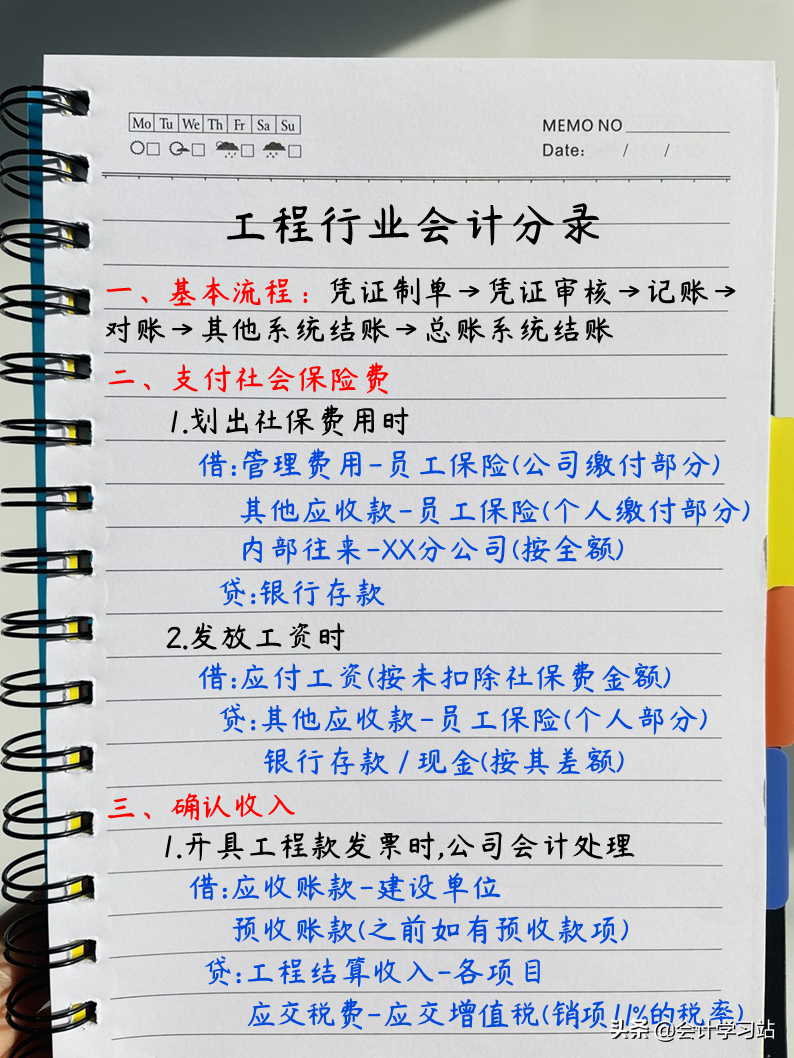 Mo Tu We Th Fr Sa Su
MEMO NO
Date: / /
工程行业会计分录
一、基本流程：凭证制单→凭证审核→记账→
对账→其他系统结账→总账系统结账
二、支付社会保险费
1.划出社保费用时
借:管理费用-员工保险(公司缴付部分)
其他应收款-员工保险(个人缴付部分)
内部往来-XX分公司(按全额)
贷:银行存款
2.发放工资时
借:应付工资(按未扣除社保费金额)
贷:其他应收款-员工保险(个人部分)
银行存款/现金(按其差额)
三、确认收入
1.开具工程款发票时,公司会计处理
借:应收账款-建设单位
预收账款(之前如有预收款项)
贷:工程结算收入-各项目
应交税费-应交增值税(销项11%的税率)
头条 @会计学习站